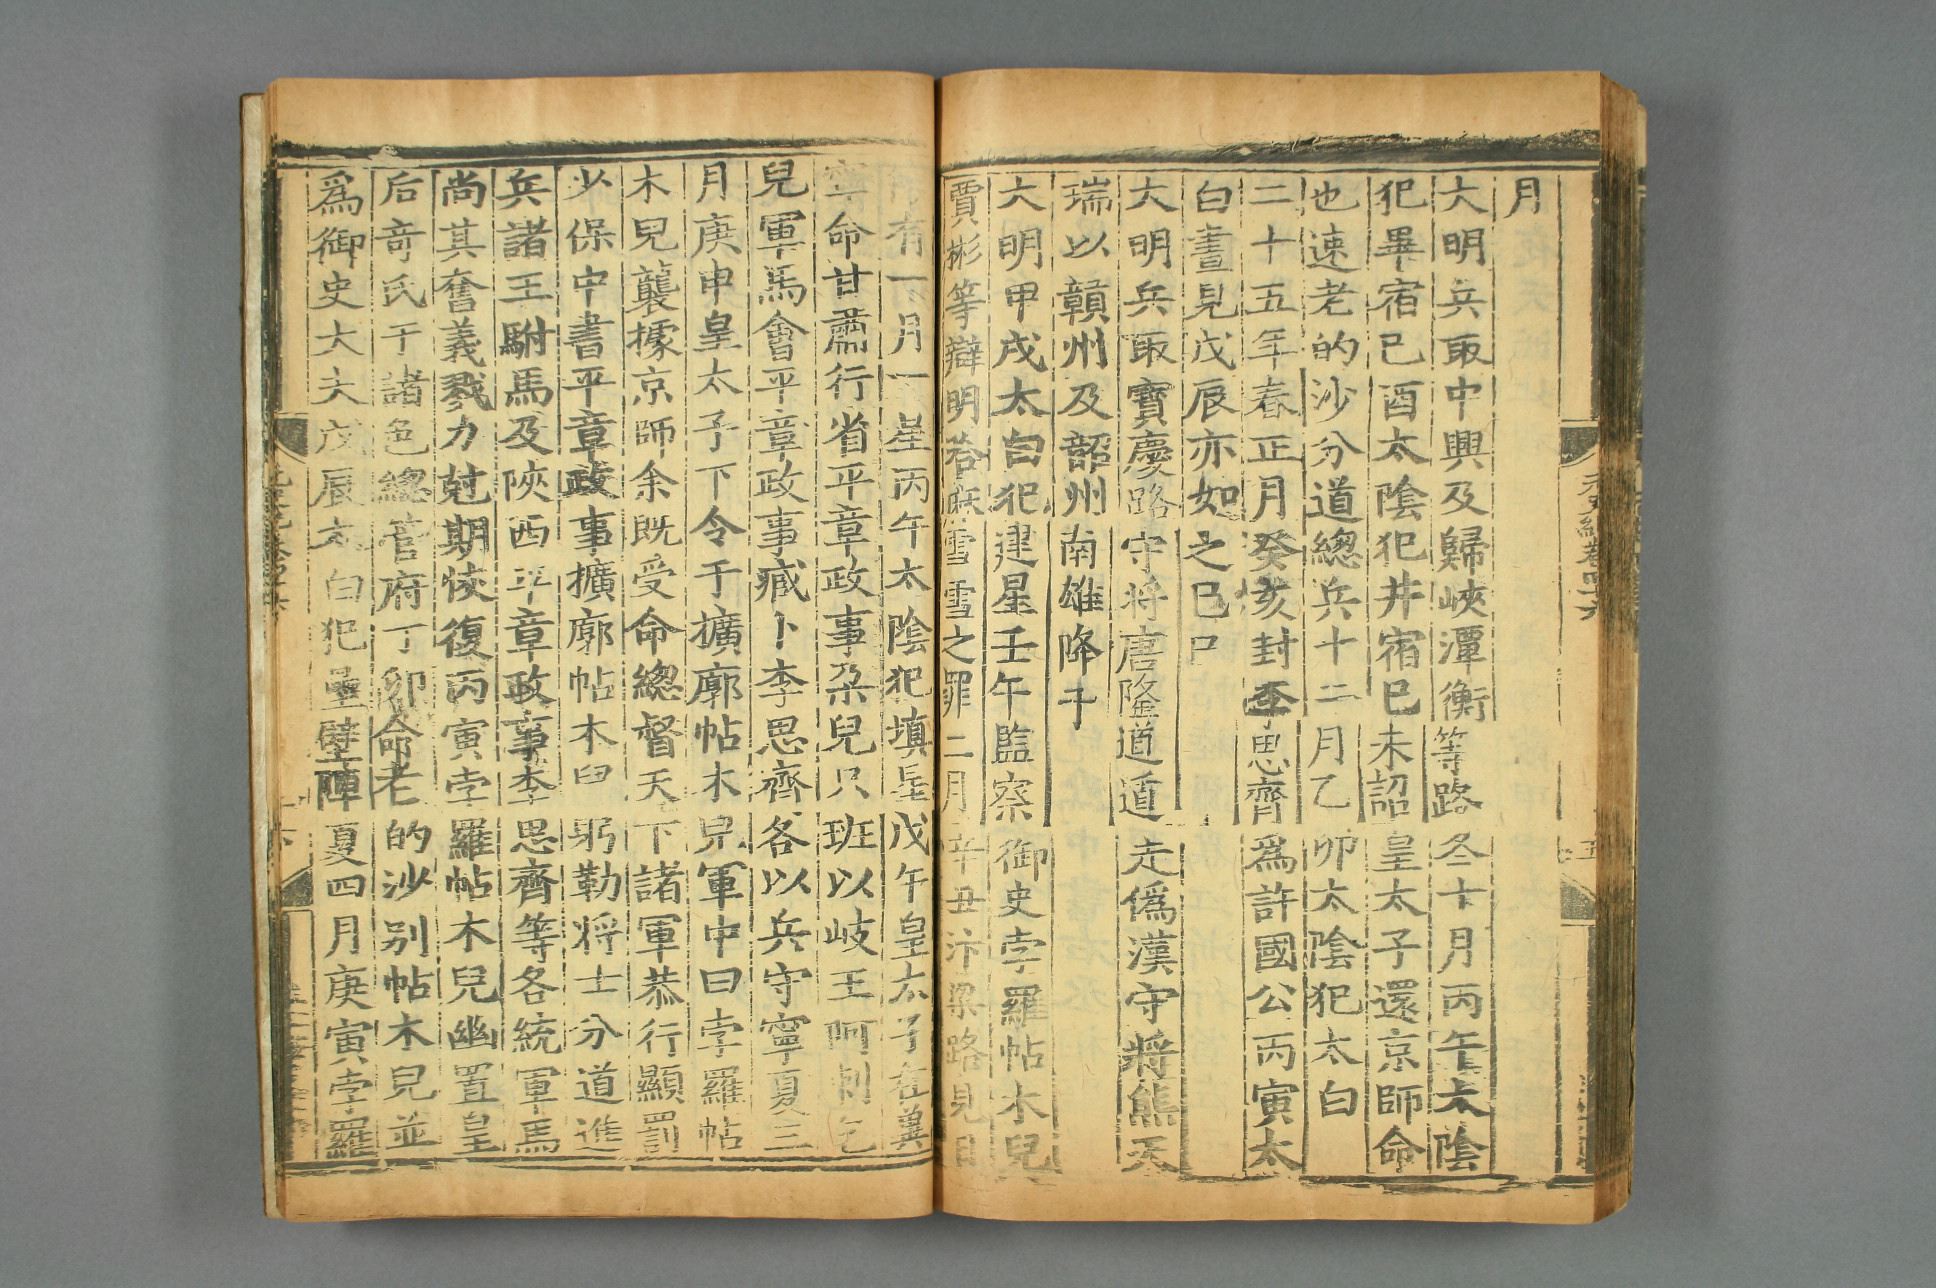 月
大明兵取中興及歸峽潭衡等路冬十月丙午太陰
犯畢宿己酉太陰犯井宿己未詔皇太子還京師命
也速老的沙分道總兵十二月乙卯太陰犯太白
二十五年春正月癸亥封李思齊爲許國公丙寅太
白晝見戊辰亦如之己巳
大明兵取寶慶路守將唐隆道遁走僞漢守將熊天
瑞以贛州及韶州南雄降
大明甲戌太白犯建星壬午監察御史孛羅帖木兒
賈彬等辯明哈麻雪雪之罪二月辛丑汴梁路見日
有一月一星丙午太陰犯填星戊午皇太子在冀
寧命甘肅行省平章政事朶兒只班以岐王阿剌乞
兒軍馬會平章政事臧卜李思齊各以兵守寧夏三
月庚申皇太子下令于擴廓帖木兒軍中曰孛羅帖
木兒襲據京師余既受命總督天下諸軍恭行顯罰
少保中書平章政事擴廓帖木兒躬勒將士分道進
兵諸王駙馬及陝西平章政事李思齊等各統軍馬
尚其奮義戮力尅期恢復丙寅孛羅帖木兒幽置皇
后奇氏于諸色總管府丁卯命老的沙別帖木兒並
爲御史大夫戊辰太白犯壘壁陣夏四月庚寅孛羅
元史紀卷四十六